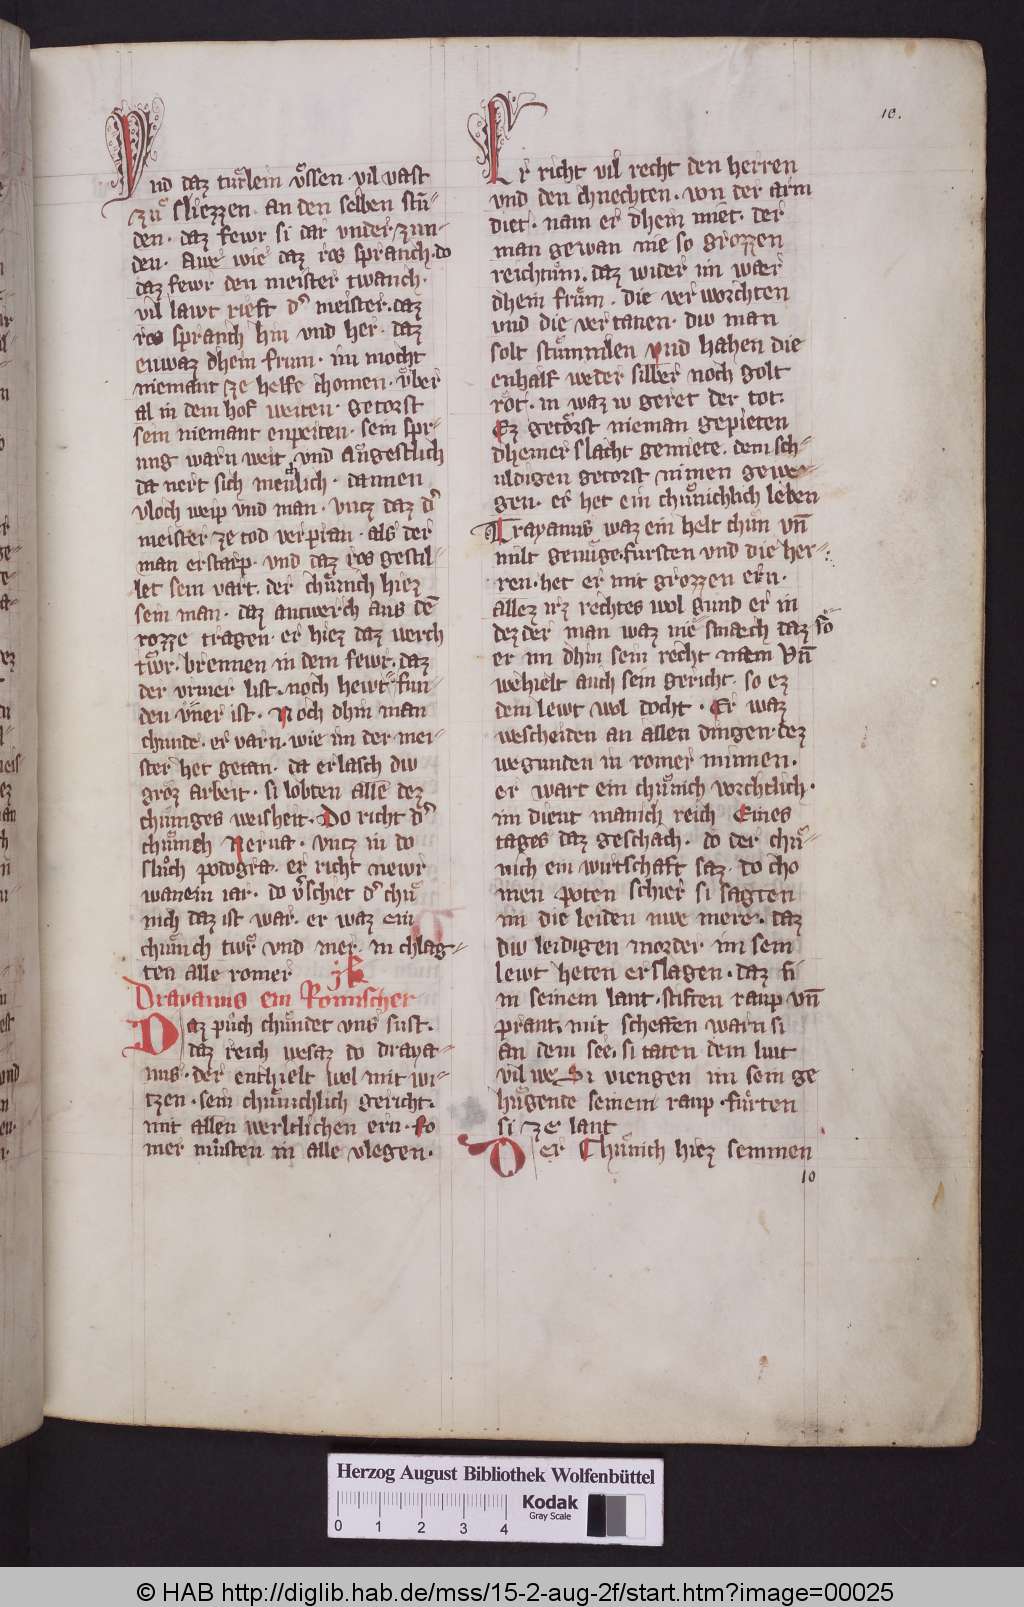 10.
Vnd daz tuͤrlein vͤssen · vil vast
zuͦ sliezzen · an den selben stū-
den · daz fewr si dar vnder zun-
den · Awe wie daz ros spranch · do
daz fewr den meister twanch ·
vil lawt rieft d᾽ meister · daz
ros spranch hin vnd her · daz
enwaz dhein frum · im mocht
niemant ze helfe chomen · vͤber
al in dem hof weiten · getorst
sein niemant enpeiten · sein spr-
ung warn weit · vnd Angestlich
da nert sich menlich · dannen
vloch weip vnd man · vntz daz d᾽
meister ze tod verpran · als der
man erstarp · vnd daz ros gestil-
let sein vart · der chuͤnich hiez
sein man · daz antwerch aus dē
rozze tragen · er hiez daz werch
twͤr · brennen in dem fewr · daz
der vrmer list · noch hewt fun-
den vn̄er ist · Noch dhin man
chunde · er varn · wie im der mei-
ster het getan · da erlasch diw
groz arbeit · si lobten alle dez
chuniges weisheit · Do richt d᾽
chuͤnich Nerua · vntz in do
sluͦch podogra · er richt newr
wan ein iar · do v᾽schiet d᾽ chuͤ
nich daz ist war · er waz ein
chuͤnich twͤr vnd mer · in chlag-
ten alle romer
Drayanus ein Romischer
Daz puͦch chuͤndet vns sust ·
daz reich wesaz do draya-
nus · der enthielt wol mit wi-
tzen · sein chuͤnichlich gericht ·
mit allen werltlichen ern · Ro
mer muͤsten in alle vlegen ·
Er richt vil recht den herren
vnd den chnechten · von der arm
diet · nam er dhein miet · der
man gewan nie so grozzen
reichtuͤm · daz wider im wær
dhein fruͤm · die verworchten
vnd die vertanen · diw man
solt stuͤmmlen vnd hahen die
enhalf weder silber noch golt
rot · in waz iv geret der tot ·
Ez getoͤrst nieman gepieten
dheiner slacht gemiete · dem sch-
uldigen getorst nimen gewe-
gen · er het ein chuͤnichlich leben
Trayanus waz ein helt chuͤn vn̄
milt genuͦge · fursten vnd die her-
ren · het er mit grozzen ern ·
allez irz rechtes wol gund er in
dez der man waz nie smæch daz
er im dhin sein recht næm Vn̄
wehielt auch sein gericht · so ez
dem lewt wol docht · Er waz
wescheiden an allen dingen · dez
wegunden in romer minnen ·
er wart ein chuͤnich vorchtlich ·
im dient manich reich Eines
tages daz geschach · do der chuͤ-
nich ein wirtschaft saz · do cho
men poten schier si sagten
im die leiden niwe mere · daz
diw leidigen morder im sein
lewt heten erslagen · daz si
in seinem lant · stiften raup vn̄
prant · mit scheffen warn si
an dem see · si taten dem liut
vil we Si viengen im sein ge
huͤgende seinem raup · fuͤrten
si ze lant
Der Chuͤnich hiez semmen
10
Herzog August Bibliothek Wolfenbüttel
0 1 2 3 4
Kodak
Gray Scale
© HAB http://diglib.hab.de/mss/15-2-aug-2f/start.htm?image=00025